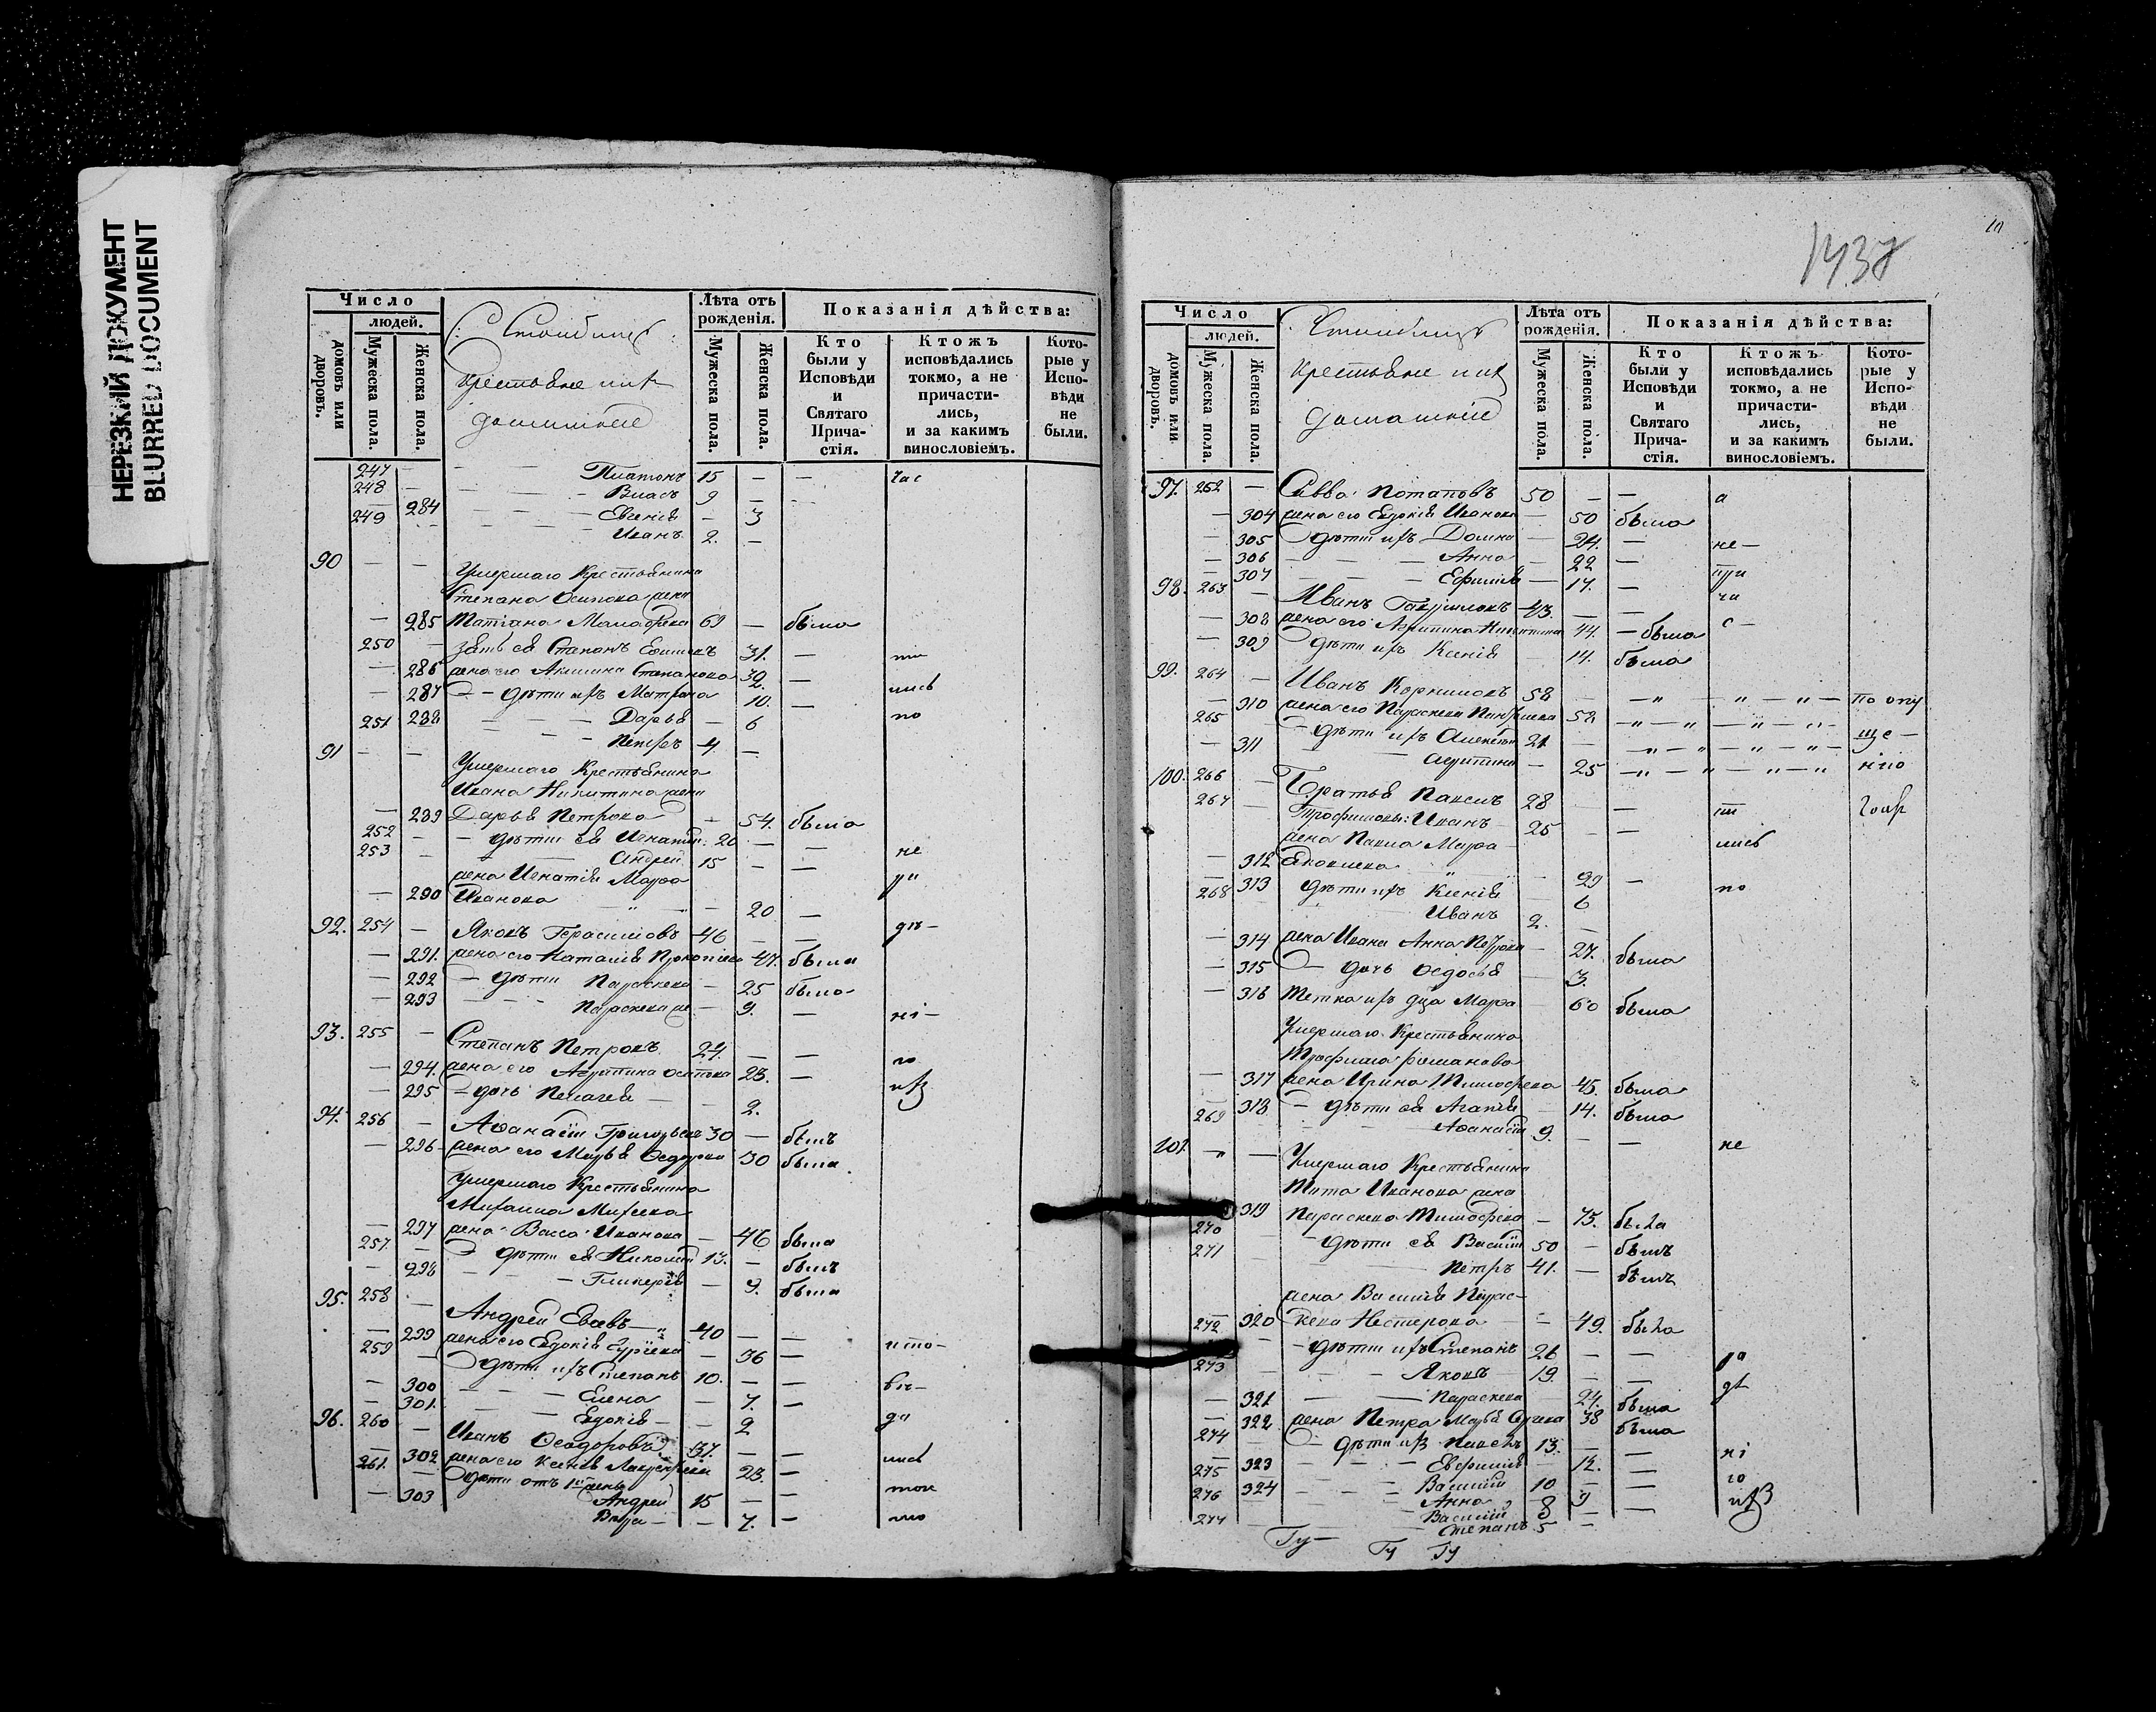 НЕРЕЗКИЙ ДОКУМЕНТ
BLURRED DOCUMENT
Число
людей.
домовъ или дворовъ.
Мужеска пола.
Женска пола.
Крестьяне ихъ
домашніе
Лѣта отъ рожденія.
Мужеска пола.
Женска пола.
Показанія дѣйства:
Кто были у Исповѣди и Святаго Прича-стія.
Ктожъ исповѣдались токмо, а не причасти-лись, и за какимъ винословіемъ.
Кото-рые у Испо-вѣди не были.
247 — Платонъ 15 — — час
248 — Власъ 9 — —
284 — Евгенія — 3
249 — Иванъ 2. —
90 — — Умершаго Крестьянина
Степана Осипова жена
— 285 Татіана 69 — была
250 — зять ея Степанъ 31. — ти
— 286 жена его Акилина Степанова 30 —
— 287 — дѣти ихъ Матрона 10. — лись
— 288 — Дарья — 6 по
251 — Петръ 4 —
91 — — Умершаго Крестьянина
Ивана Никитина жена
— 289 Дарья Петрова — 54. была
252 — дѣти ея Игнатій 20 — —
253 — Андрей 15 — — не
жена Игнатія Марѳа ра
— 290 Иванова — 20 —
92. 254 — Яковъ Герасимовъ 46 — — дѣ—
— 291. жена его Наталія Прокопіева 47. была
— 292 — дѣти Параскева — 25 была
— 293 — Параскева же — 9. — ні—
93. 255 — Степанъ Петровъ 24. — —
— 294. жена его Агрипина Осипова 23. — го
— 295 — дочь Пелагея — 2. ихъ
94. 256 — Аѳанасій Григорьевъ 30 — былъ
— 296 жена его Марья Ѳедорова 30 была
Умершаго Крестьянина
Михаила Михеева
— 297 жена Васса Иванова — 46 была
257. — дѣти ея Николай 13. — былъ
— 298 — Гликерія — 9. была
95. 258 — Андрей 40 — —
— 299 жена его Евдокія Гуріева — 36 — исто—
259 — дѣти ихъ Степанъ 10. — —
— 300 — Елена — 7. — вѣ—
— 301. — Евдокія — 2 да
96. 260 — Иванъ Ѳеодоровъ 37. — —
— 302 жена его Ксенія 23. — лись
261. — дѣти отъ 1й жены
Андрей 15 — — толь
— 303 — 7. — ко
10
1437
Число
людей.
домовъ или дворовъ.
Мужеска пола.
Женска пола.
Крестьяне ихъ
домашніе
Лѣта отъ рожденія.
Мужеска пола.
Женска пола.
Показанія дѣйства:
Кто были у Исповѣди и Святаго Прича-стія.
Ктожъ исповѣдались токмо, а не причасти-лись, и за какимъ винословіемъ.
Кото-рые у Испо-вѣди не были.
97. 262 — Савва Потаповъ 50 — — а
— 304 жена его Евдокія Иванова — 50 была
— 305 дѣти ихъ Домна — 24. — не—
— 306 — Анна — 22 —
— 307 — Ефимія — 17. — при
98. 263 — Иванъ 43. — — ча
— 308 жена его Агрипина Никитина 44. — была с—
— 309 дѣти ихъ Ксенія — 14. была
99. 264 — Иванъ Корниловъ 58 по опу
— 310 жена его Параскева 52
265 — дѣти ихъ Алексѣй 21 ще—
— 311 — Агрипина — 25 нію
100. 266 — Братья Павелъ 28 — ти
267 — Трофимовы: Иванъ 25 — —
жена Павла Марѳа лись
— 312 Яковлева — 29 —
— 313 дѣти ихъ Ксенія — 6 по
268 Иванъ 2. —
— 314 жена Ивана Анна Петрова — 27. была
— 315 — дочь Ѳедосья — 3.
— 316 Тетка ихъ Марѳа — 60 была
Умершаго Крестьянина
Трофима Романова
— 317 жена Ирина Тимоѳеева 45. была
— 318 — дѣти ея Агапія — 14. была
269 Аѳанасій 9. — — не
101. — Умершаго Крестьянина
Тита Иванова жена
— 319 Параскева Тимоѳеева — 75. была
270 — дѣти ея Василій 50 — былъ
271 — Петръ 41. — былъ
жена Василія Парас—
— 320 кева Нестерова — 49. была
272 — дѣти ихъ Степанъ 26 — — ра
273 — Яковъ 19. — — дѣ
— 321 — Параскева — 24. была
— 322 жена Петра Марья 38 была
274 — дѣти ихъ Павелъ 13. — —
— 323 — Евфимія — 12. — ні
275 — Василій 10 — — го
— 324 — Анна — 9 — ихъ
276 — Василій 8 — —
277 — Степанъ 5 —